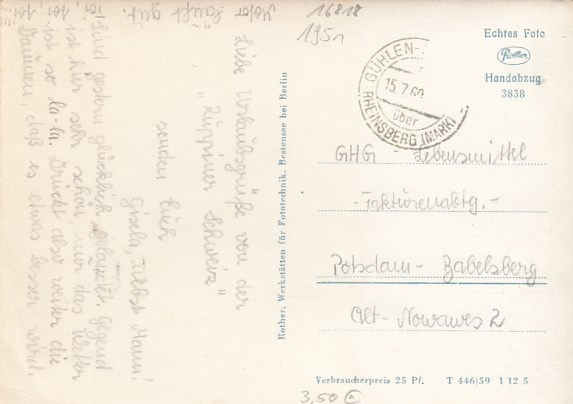 Liebe Urlaubsgrüße von der
"Ruppiner Schweiz"
senden Euch
Gisela, nebst Mann!
Sind gestern glücklich gelandet. Gegend
ist hier sehr schön, nur das Wetter
ist so la-la. Drückt also weiter die
Daumen, daß es etwas besser wird.
Motor läuft gut.
16818
195
GÜHLEN-
15.7.60
über
RHEINSBERG (MARK)
Echtes Foto
Rotter
Handabzug
3838
GHG Lebensmittel
-Fakturenabtg.-
Potsdam-Babelsberg
Alt-Nowawes 2
Rother, Werkstätten für Fototechnik, Bestensee bei Berlin
Verbraucherpreis 25 Pf. T 446/59 1 12 5
3,50 €